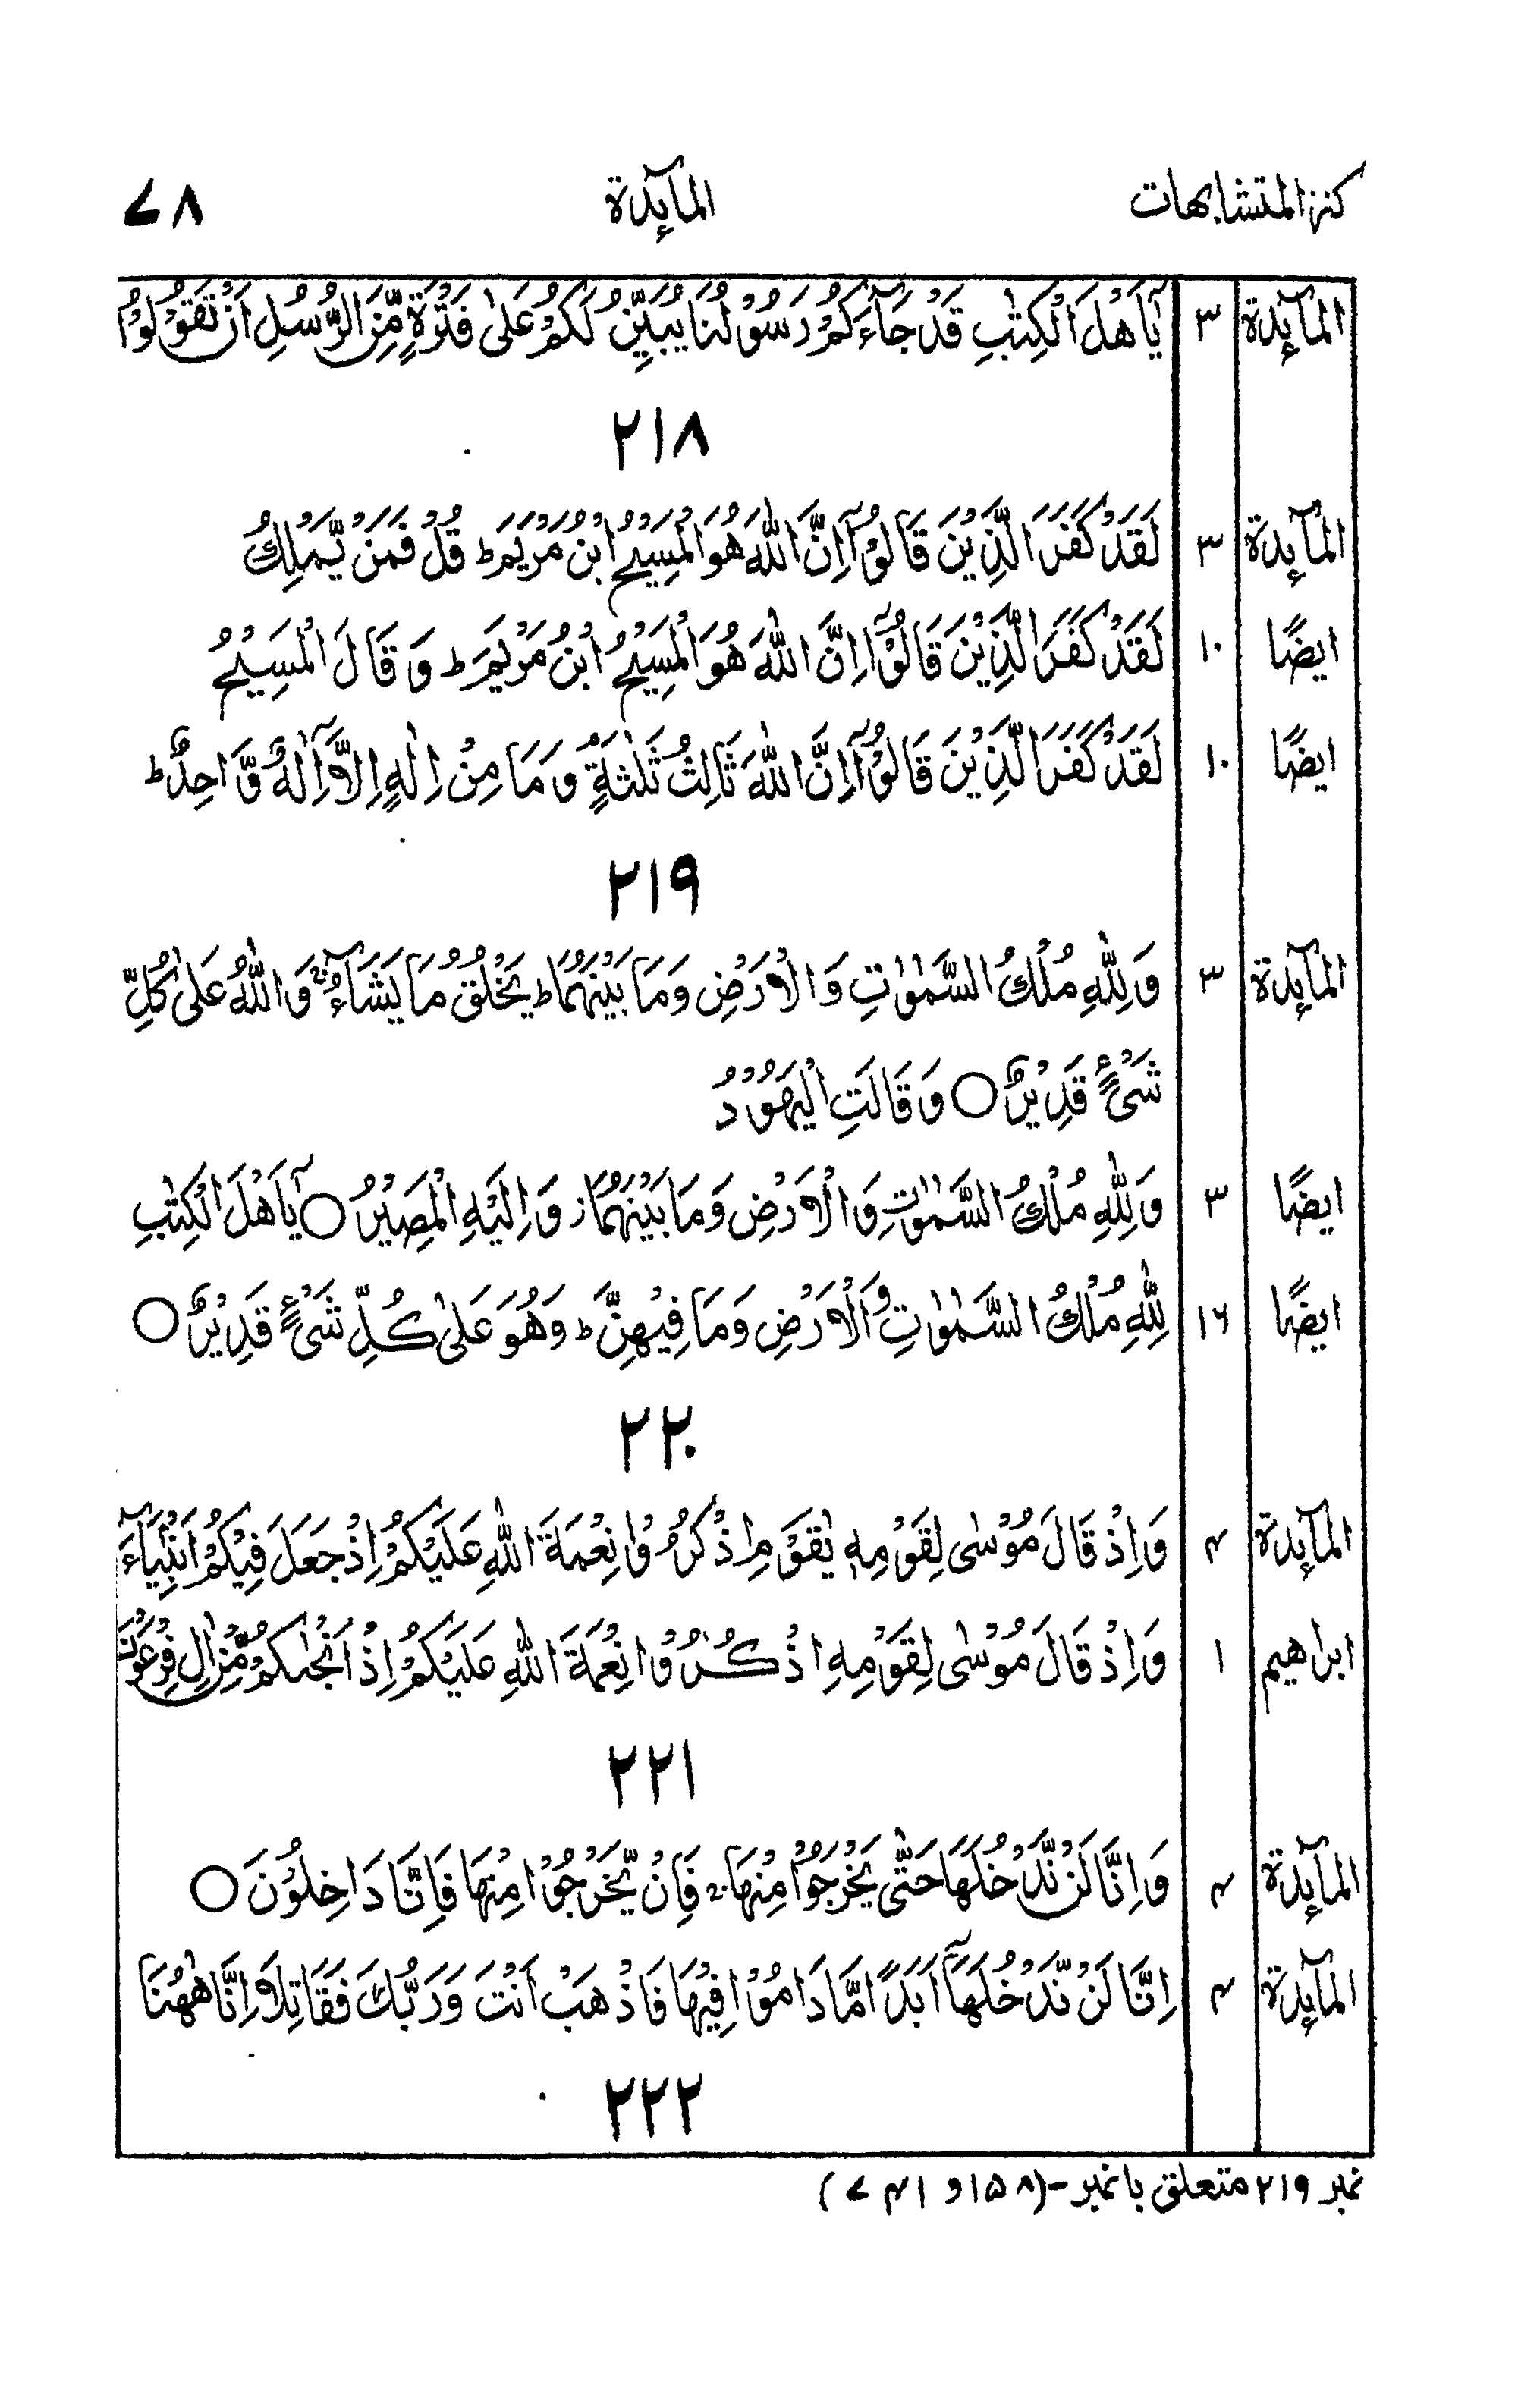 كنز المتشابهات المآئدة ۷۸
المآئدة ۳ يٰٓاَهْلَ الْكِتٰبِ قَدْ جَآءَكُمْ رَسُوْلُنَا يُبَيِّنُ لَكُمْ عَلٰى فَتْرَةٍ مِّنَ الرُّسُلِ اَنْ تَقُوْلُوْا
۲۱۸
المآئدة ۳ لَقَدْ كَفَرَ الَّذِيْنَ قَالُوْٓا اِنَّ اللّٰهَ هُوَ الْمَسِيْحُ ابْنُ مَرْيَمَ ؕ قُلْ فَمَنْ يَّمْلِكُ
ايضًا ۱۰ لَقَدْ كَفَرَ الَّذِيْنَ قَالُوْٓا اِنَّ اللّٰهَ هُوَ الْمَسِيْحُ ابْنُ مَرْيَمَ ؕ وَ قَالَ الْمَسِيْحُ
ايضًا ۱۰ لَقَدْ كَفَرَ الَّذِيْنَ قَالُوْٓا اِنَّ اللّٰهَ ثَالِثُ ثَلٰثَةٍ ۘ وَمَا مِنْ اِلٰهٍ اِلَّآ اِلٰهٌ وَّاحِدٌ ؕ
۲۱۹
المآئدة ۳ وَ لِلّٰهِ مُلْكُ السَّمٰوٰتِ وَ الْاَرْضِ وَمَا بَيْنَهُمَا ؕ يَخْلُقُ مَا يَشَآءُ ؕ وَ اللّٰهُ عَلٰى كُلِّ
شَيْءٍ قَدِيْرٌ ○ وَ قَالَتِ الْيَهُوْدُ
ايضًا ۳ وَ لِلّٰهِ مُلْكُ السَّمٰوٰتِ وَ الْاَرْضِ وَمَا بَيْنَهُمَا ز وَ اِلَيْهِ الْمَصِيْرُ ○ يٰٓاَهْلَ الْكِتٰبِ
ايضًا ۱۶ لِلّٰهِ مُلْكُ السَّمٰوٰتِ وَ الْاَرْضِ وَمَا فِيْهِنَّ ؕ وَهُوَ عَلٰى كُلِّ شَيْءٍ قَدِيْرٌ ○
۲۲۰
المآئدة ۴ وَ اِذْ قَالَ مُوْسٰى لِقَوْمِهٖ يٰقَوْمِ اذْكُرُوْا نِعْمَةَ اللّٰهِ عَلَيْكُمْ اِذْ جَعَلَ فِيْكُمْ اَنْبِيَآءَ
ابراهيم ۱ وَ اِذْ قَالَ مُوْسٰى لِقَوْمِهِ اذْكُرُوْا نِعْمَةَ اللّٰهِ عَلَيْكُمْ اِذْ اَنْجٰىكُمْ مِّنْ اٰلِ فِرْعَوْنَ
۲۲۱
المآئدة ۴ وَ اِنَّا لَنْ نَّدْخُلَهَا حَتّٰى يَخْرُجُوْا مِنْهَا ۚ فَاِنْ يَّخْرُجُوْا مِنْهَا فَاِنَّا دَاخِلُوْنَ ○
المآئدة ۴ اِنَّا لَنْ نَّدْخُلَهَآ اَبَدًا مَّا دَامُوْا فِيْهَا فَاذْهَبْ اَنْتَ وَرَبُّكَ فَقَاتِلَآ اِنَّا هٰهُنَا
۲۲۲
نمبر ۲۱۹ متعلق با نمبر - (۱۵۸ و ۷۴۱)